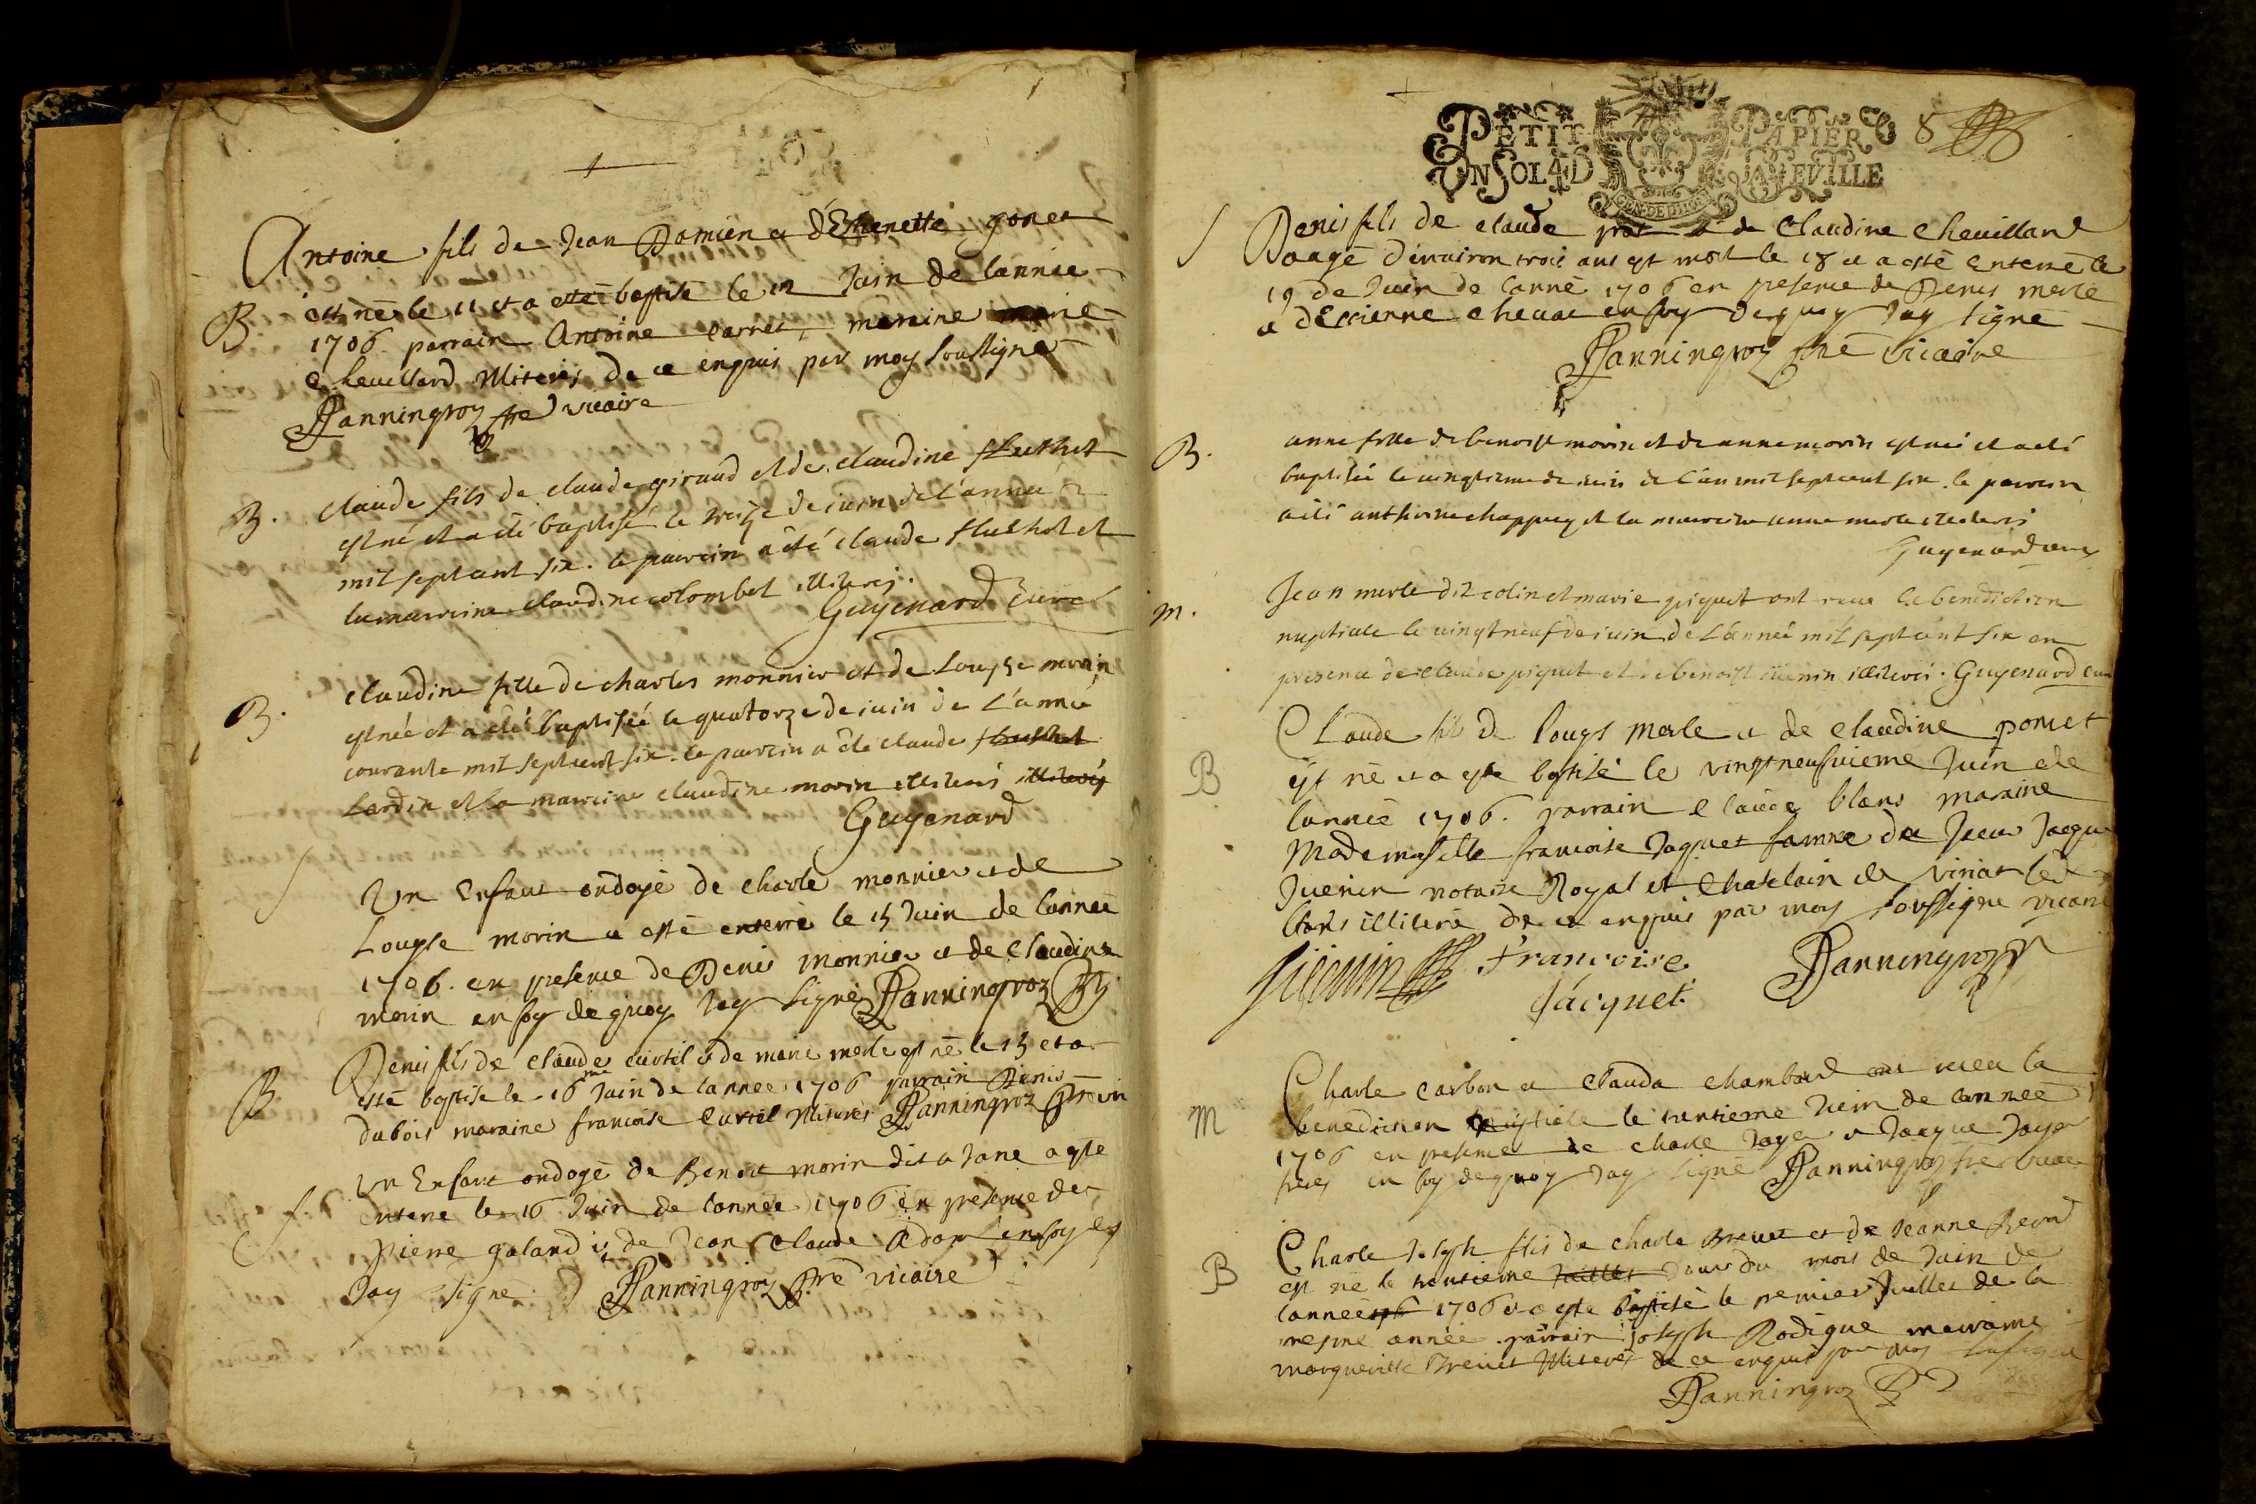 Antoine fils de Jean Domien et d'Estienette ponet
est né le 11 et a esté baptisé le 12 Juin de lannée
B. 1706 parrain Antoine carret, maraine marie
chevillard illiterés de ce enquis par moy soussigné
Panningroz ptre vicaire
B. claude fils de claude giraud et de claudine
est né et a été baptisé le treize de iuin de l'année
mil sept cent six. le parrein a été claude et
la marreine claudine colombet illiterez.
Guyenard curé
B. claudine fille de charles monnier et de Louyse morin
est née et a été baptisée le quatorze de iuin de l'année
courante mil sept cent six. le parrein a été claude
Lardin et la marreine claudine morin illiterés illiterés
Guyenard
Un Enfant ondoyé de charle monnier et de
Louyse morin a esté enterré le 15 Juin de lannée
1706. en presence de Denis monnier et de claudine
morin en foy de quoy Jay signé Panningroz
Denis fils de claude curtil et de marie merle est né le 15 et a
B. esté baptisé le 16me Juin de lannee 1706 parrain Denis
dubois maraine francoise curtil illiterés Panningroz
Un Enfant ondoyé de Benoit morin dit a Jane a esté
enterré le 16 Juin de lannée 1706 en presence de
pierre galand et de Jean claude Adam en foy
Jay signé Panningroz ptre vicaire
PETIT PAPIER
UN SOL 4 D LA FEUILLE
GEN. DE DIJON
8
Denis fils de claude et de claudine chevillard
aagé d'environ trois ans est mort le 18 et a esté enterré le
19 de Juin de lanné 1706 en presence de Denis merle
et d'Estienne en foy de quoy Jay signé
Panningroz ptre vicaire
B. anne fille de benoist morin et de anne morin est née et a été
baptisée le vingtieme de iuin de l'an mil sept cent six. le parrein
a été anthoine chappuy et la marreine anne merle illiterés
Guyenard curé
m. Jean merle dit colin et marie piquet ont receu la benediction
nuptiale le vingt neuf de iuin de L'année mil sept cent six en
presence de claude piquet et de benoist illiterés. Guyenard curé
Claude fils de Louys Merle et de claudine ponet
B est né et a esté baptisé le vingt neufvieme Juin de
lannée 1706. parrain claude blans maraine
Mademoiselle francoise Jaquet famme du sieur Jacque
Juenin notaire Royal et chatelain de viriat led
blans illiteré de ce enquis par moy soussigné vicaire
Juenin Francoise Panningroz
Jacquet
Charle carbon et clauda chambard ont receu la
M benediction nuptiale le trentieme Juin de lannée
1706 en presence de charle Jayer et Jacque Jayer
freres en foy de quoy Jay signé Panningroz ptre vicaire
Charle Joseph fils de charle Brevet et de Jeanne
B est né le trentieme Juillet Jour du mois de Juin de
lannee 1706 et a esté baptisé le premier Juillet de la
mesme année. parrain Joseph Rodigue marraine
marguerite Brevet illiterés de ce enquis par moy soussigné
Panningroz